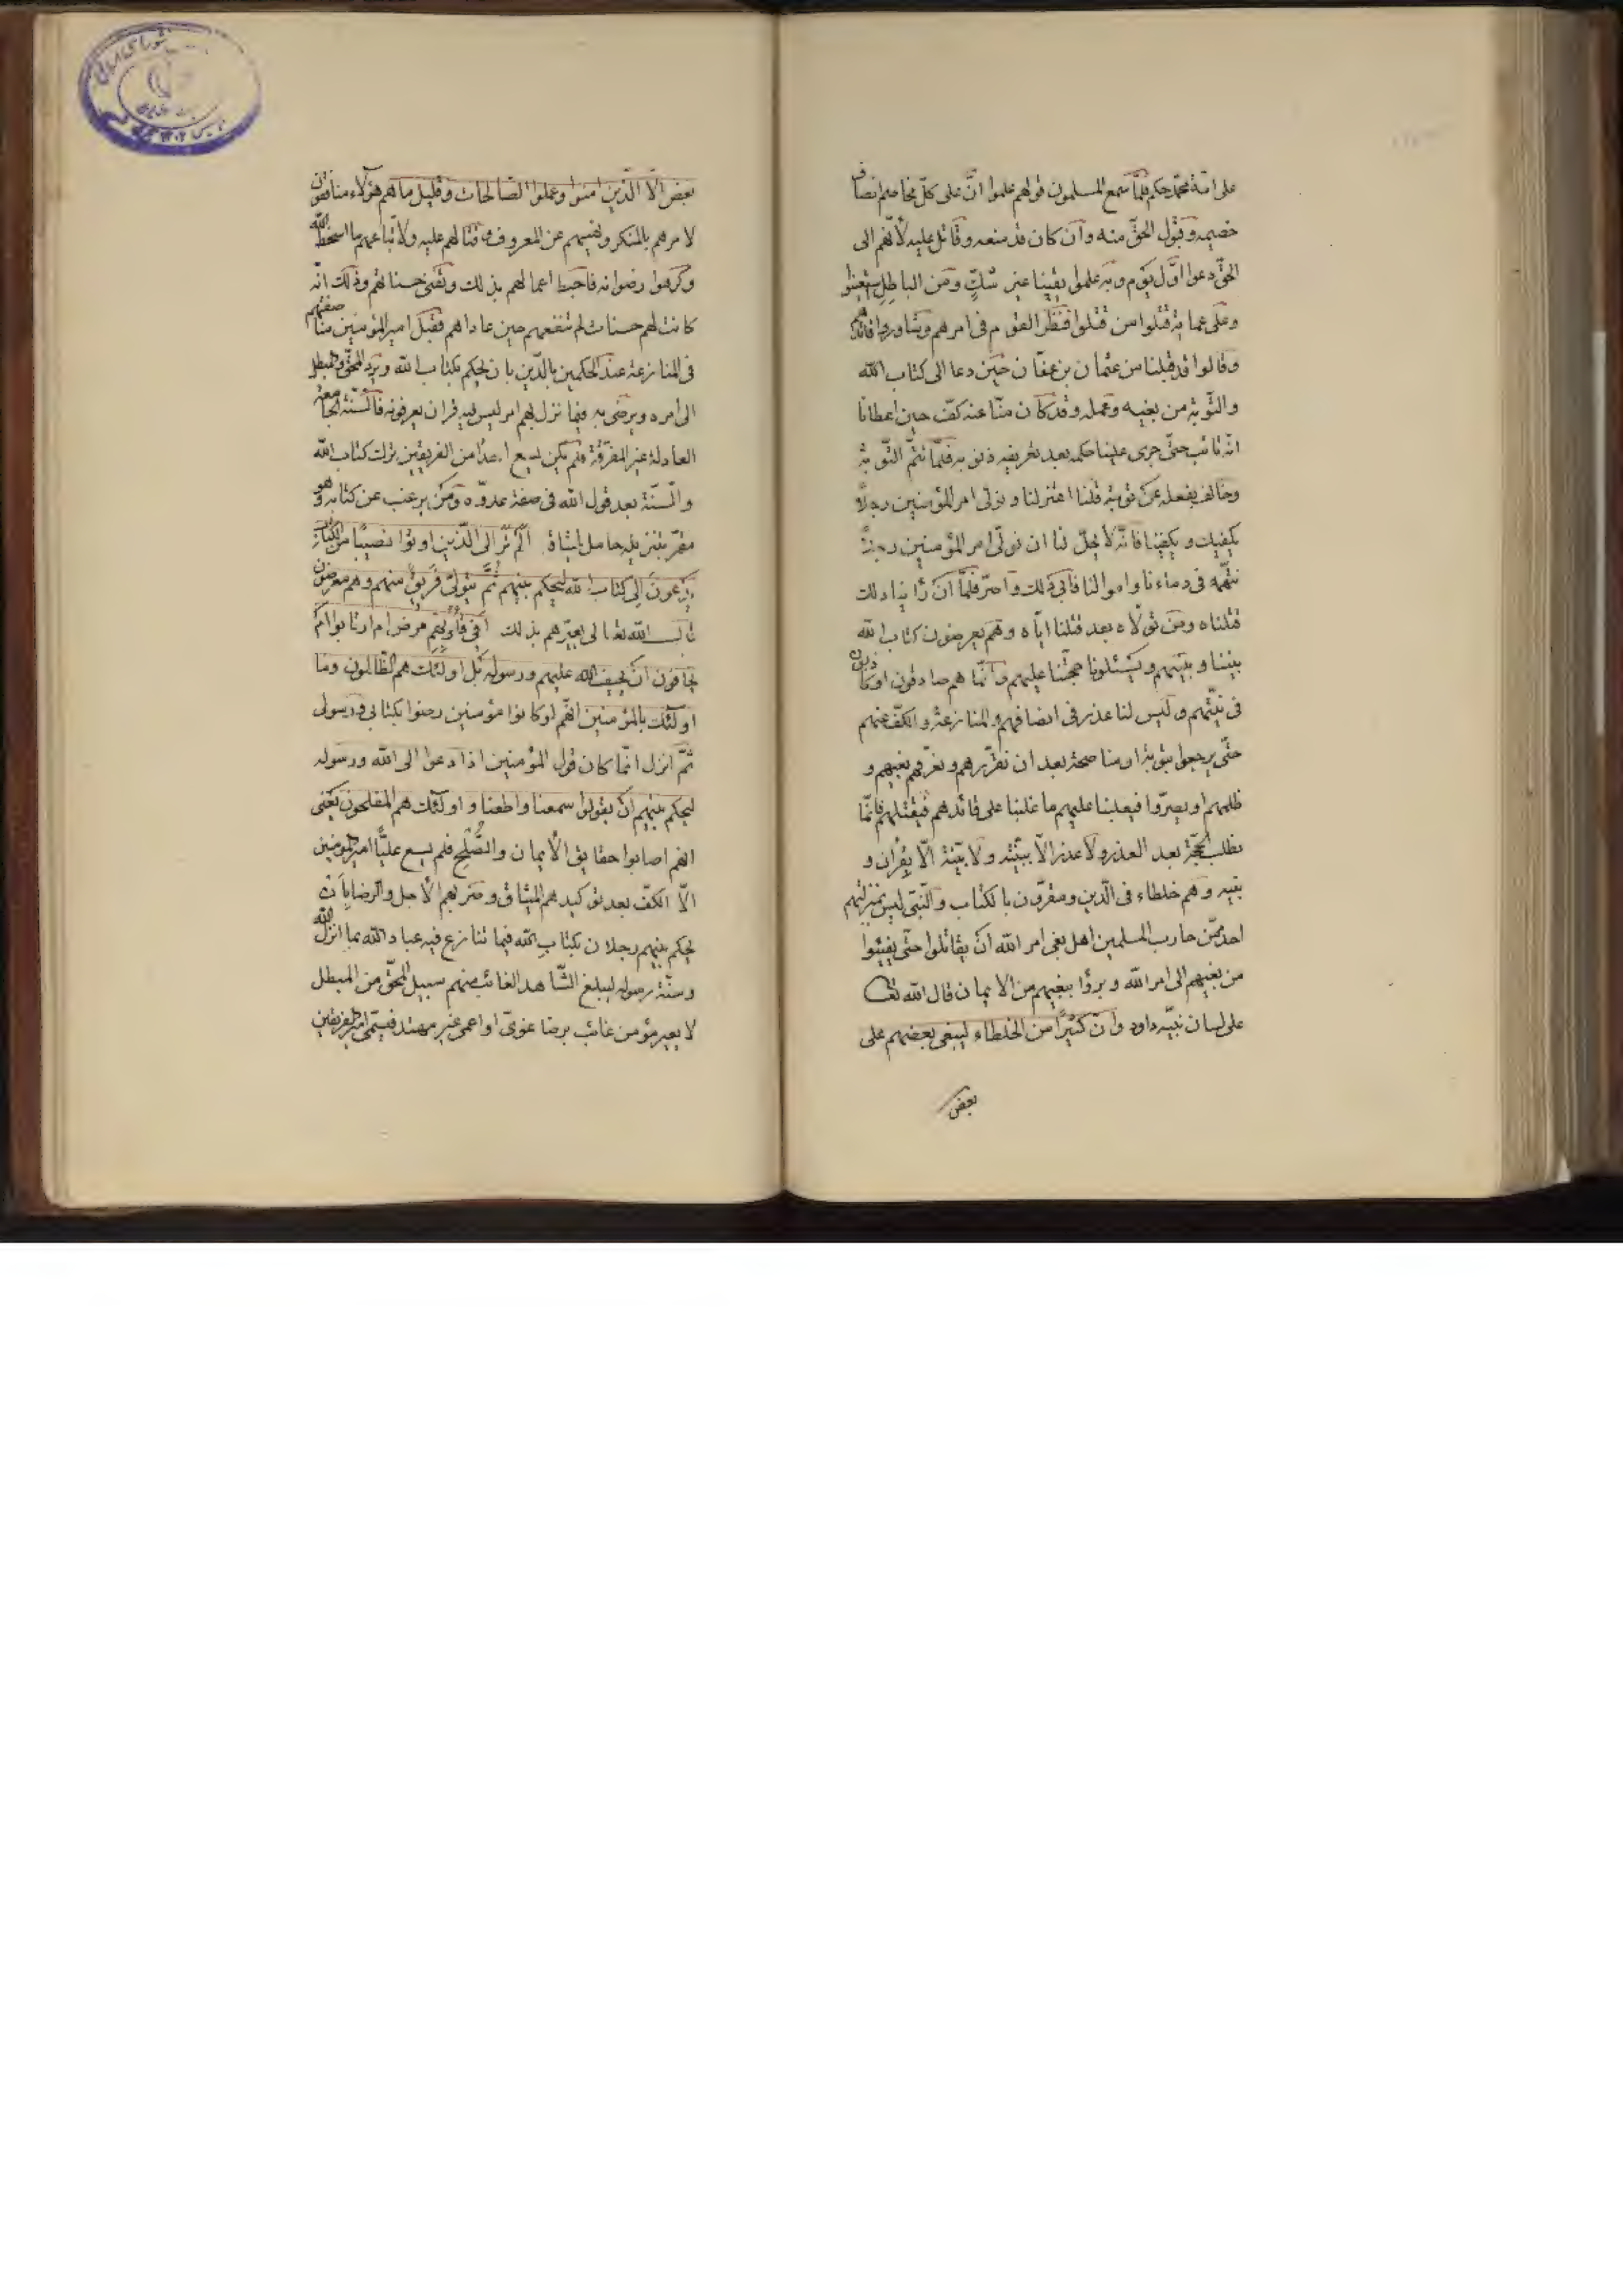 على امّة محمّد حكم فلمّا سمع المسلمون قولهم علموا انّ على كلّ مخاصم انصاف
خصمه وقبول الحقّ منه وان كان قد منعه وقاتل عليه لأنّهم الى
الحقّ دعوا اوّل يوم وبه علموا يقينا غير شكّ ومن الباطل
وعلى عماية قتلوا من قتلوا فنظر القوم فى امرهم وشاوروا قائدهم
وقالوا قد قبلنا من عثمان بن عفّان حين دعا الى كتاب الله
والتّوبة من بغيه وعمله وقد كان منّا عنه كفّ حين اعطانا
انّه تائب حتّى جرى علينا حكمه بعد تعريفه ذنوبه فلمّا لم يتمّ التّوبة
وخالف بفعله عن توبته قلنا اعتزلنا ونولّى امر المؤمنين رجلاً
يكفيك ويكفينا فانّه لا يحلّ لنا ان نولّى امر المؤمنين رجلاً
نتّهمه فى دماءنا واموالنا فابى ذلك واصرّ فلمّا ان رأينا ذلك
قتلناه ومن تولّاه بعد قتلنا ايّاه وهم يعرضون كتاب الله
بيننا وبينهم ويسئلونا حجّتنا عليهم وانّما هم صادقون او كاذبون
فى نيّتهم وليس لنا عذر فى انصافهم والمنازعة والكفّ عنهم
حتّى يرجعوا بتوبة او مناصحة بعد ان نقرّرهم ونعرّفهم بغيهم و
ظلمهم او يصرّوا فيغلبنا عليهم ما غلبنا على قائدهم فيقتلهم فانّما
نطلب الحجّة بعد العذر ولا عذر الّا ببيّنة ولا بيّنة الّا بقران و
بنبيه وهم خلطاء فى الدّين ومقرّون بالكتاب والنّبى ليس بمنزلتهم
احد ممّن حارب المسلمين اهل بغى امر الله ان يقاتلوا حتّى يفيئوا
من بغيهم الى امر الله وبرؤا ببغيهم من الايمان قال الله تعا
على لسان نبيّه داود وانّ كثيرًا من الخلطاء ليبغى بعضهم على
بعض
بعض الّا الّذين امنوا وعملوا الصّالحات وقليل ما هم هؤلاء منافقون
لامرهم بالمنكر ونهيهم عن المعروف وقتالهم عليه ولاتّباعهم ما اسخط الله
وكرهوا رضوانه فاحبط اعمالهم بذلك وتفنى حسناتهم وذلك انّه
كانت لهم حسنات لم تنفعهم حين عاداهم فقبل امير المؤمنين مناصفتهم
فى المنازعة عند الحكمين بالدّين بان يحكم بكتاب الله ويردّ المحقّ والمبطل
الى امره ويرضى به فيما نزل بهم امر ليس فيه قران يعرفونه فالسّنّة الجامعة
العادلة غير المفرّقة فلم يكن يسع احدًا من الفريقين ترك كتاب الله
والسّنّة بعد قول الله فى صفة عدوّه ومن يرغب عن كتابه وهو
مقرّ بتنزيله حامل لميثاقه الم تر الى الّذين اوتوا نصيبًا من الكتاب
يدعون الى كتاب الله ليحكم بينهم ثمّ يتولّى فريق منهم وهم معرضون
قال الله تعالى يعيّرهم بذلك افى قلوبهم مرض ام ارتابوا ام
يخافون ان يحيف الله عليهم ورسوله بل اولئك هم الظّالمون وما
اولئك بالمؤمنين انّهم لو كانوا مؤمنين رضوا بكتابى ورسولى
ثمّ انزل انّما كان قول المؤمنين اذا دعوا الى الله ورسوله
ليحكم بينهم ان يقولوا سمعنا واطعنا واولئك هم المفلحون يعنى
انّهم اصابوا حقايق الأيمان والصّلح فلم يسع عليًّا امير المؤمنين
الّا الكفّ بعد توكيدهم الميثاق وضربهم الأجل والرضا بان
يحكم بينهم رجلان بكتاب الله فيما تنازع فيه عباد الله بما انزل الله
وسنّة رسوله ليبلغ الشّاهد الغائب منهم سبيل المحقّ من المبطل
لا يعير مؤمن غائب برضا غوىّ او اعمى غير مهتد فيسمّى امير الفريقين